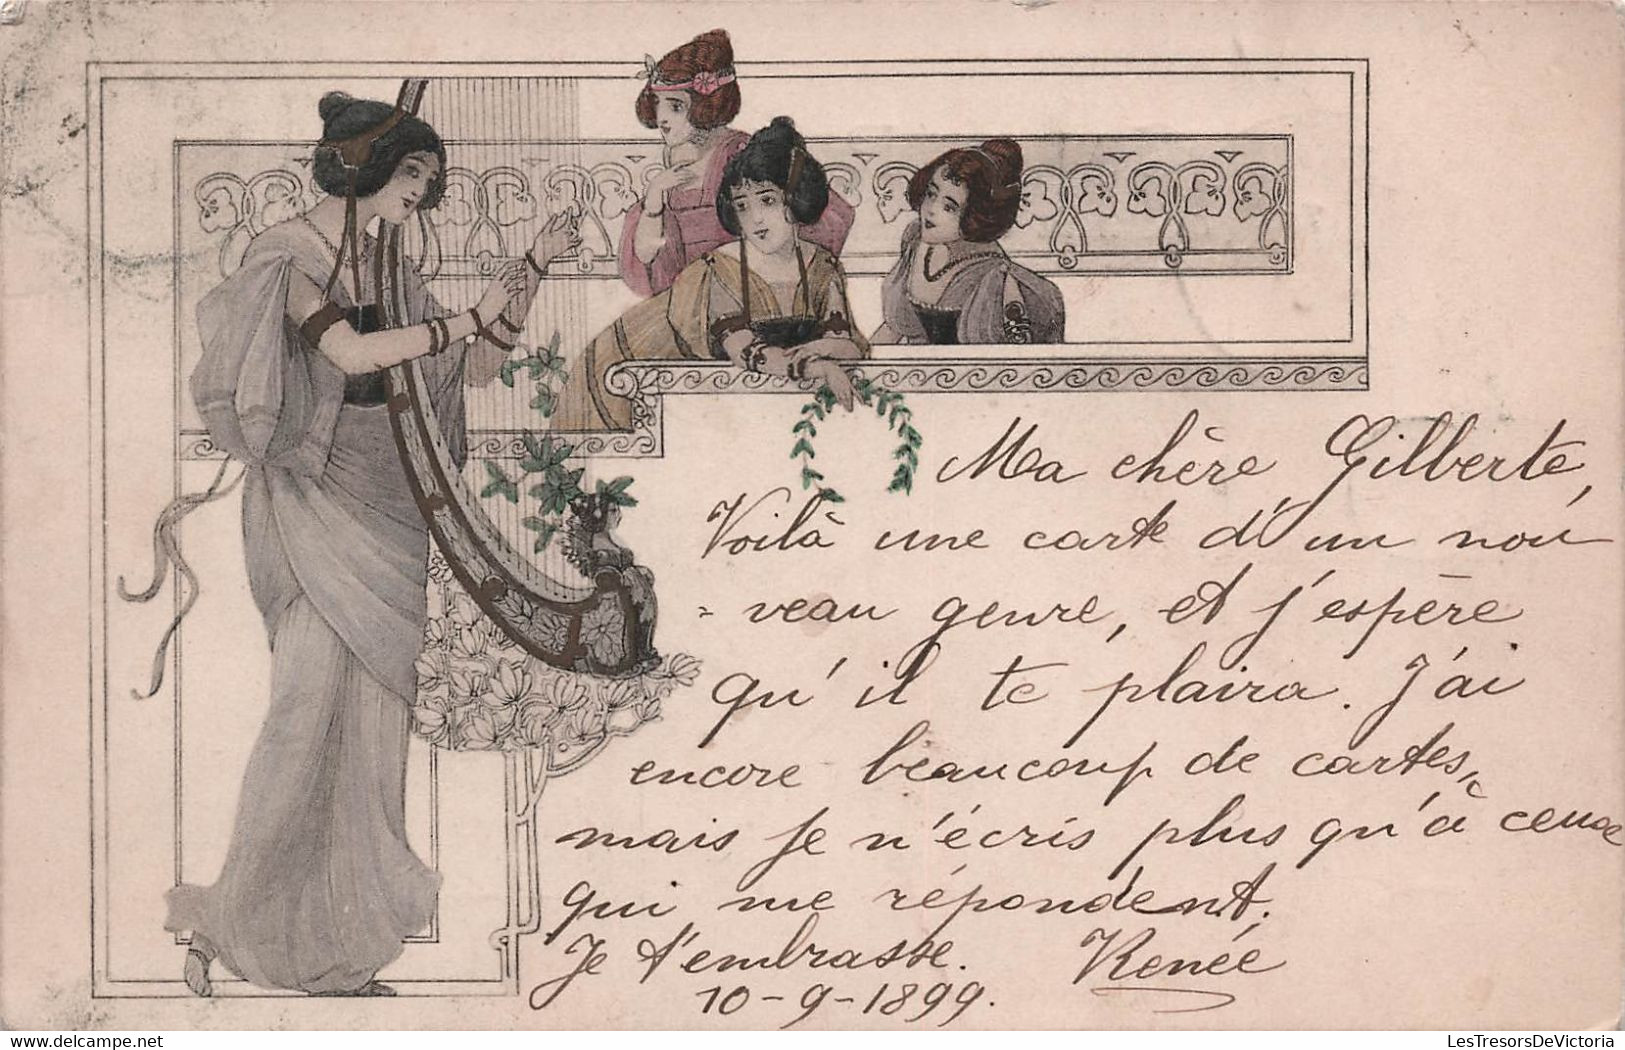 Ma chère Gilberte,
Voilà une carte d'un nou
= veau genre, et j'espère
qu'il te plaira. J'ai
encore beaucoup de cartes,
mais je n'écris plus qu'à ceux
qui me répondent.
Je t'embrasse. Renée
10-9-1899.
delcampe.net
LesTresorsDeVictoria